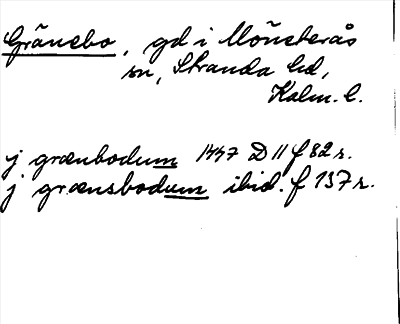 Gränebo, gd i Mönsterås
sn, Stranda hd,
Kalm. l.
j grænbodum 1447 D 11 f 82 r.
j grænsbodum ibid. f 137 r.